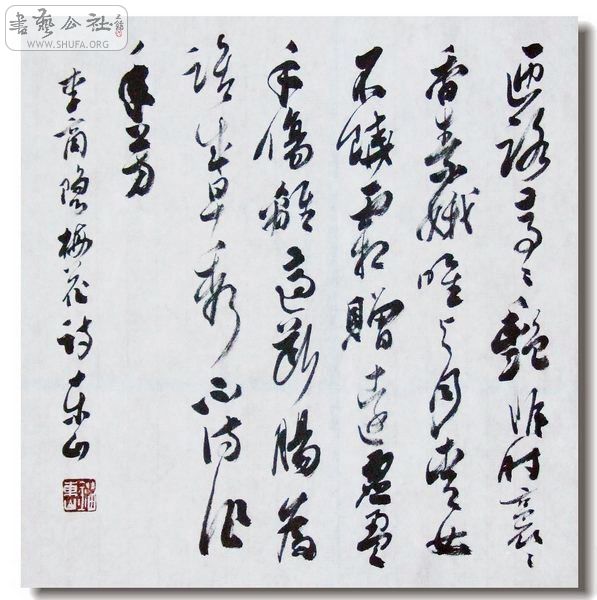 書藝公社
WWW.SHUFA.ORG
匝路亭〻艷非时裛〻
香素娥唯与月青女
不饒霜贈遠虛盈
手傷離適斷腸為
誰成早秀不待作
年芳
李商隐梅花诗 东山